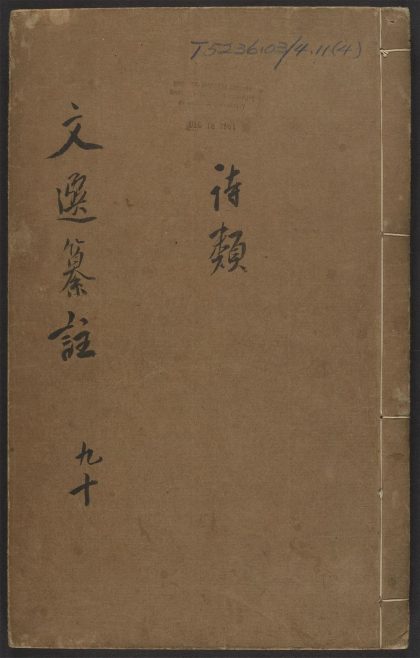 T5236.03/4.11(4)
DEC 18 1961
詩類
文選纂註
九十